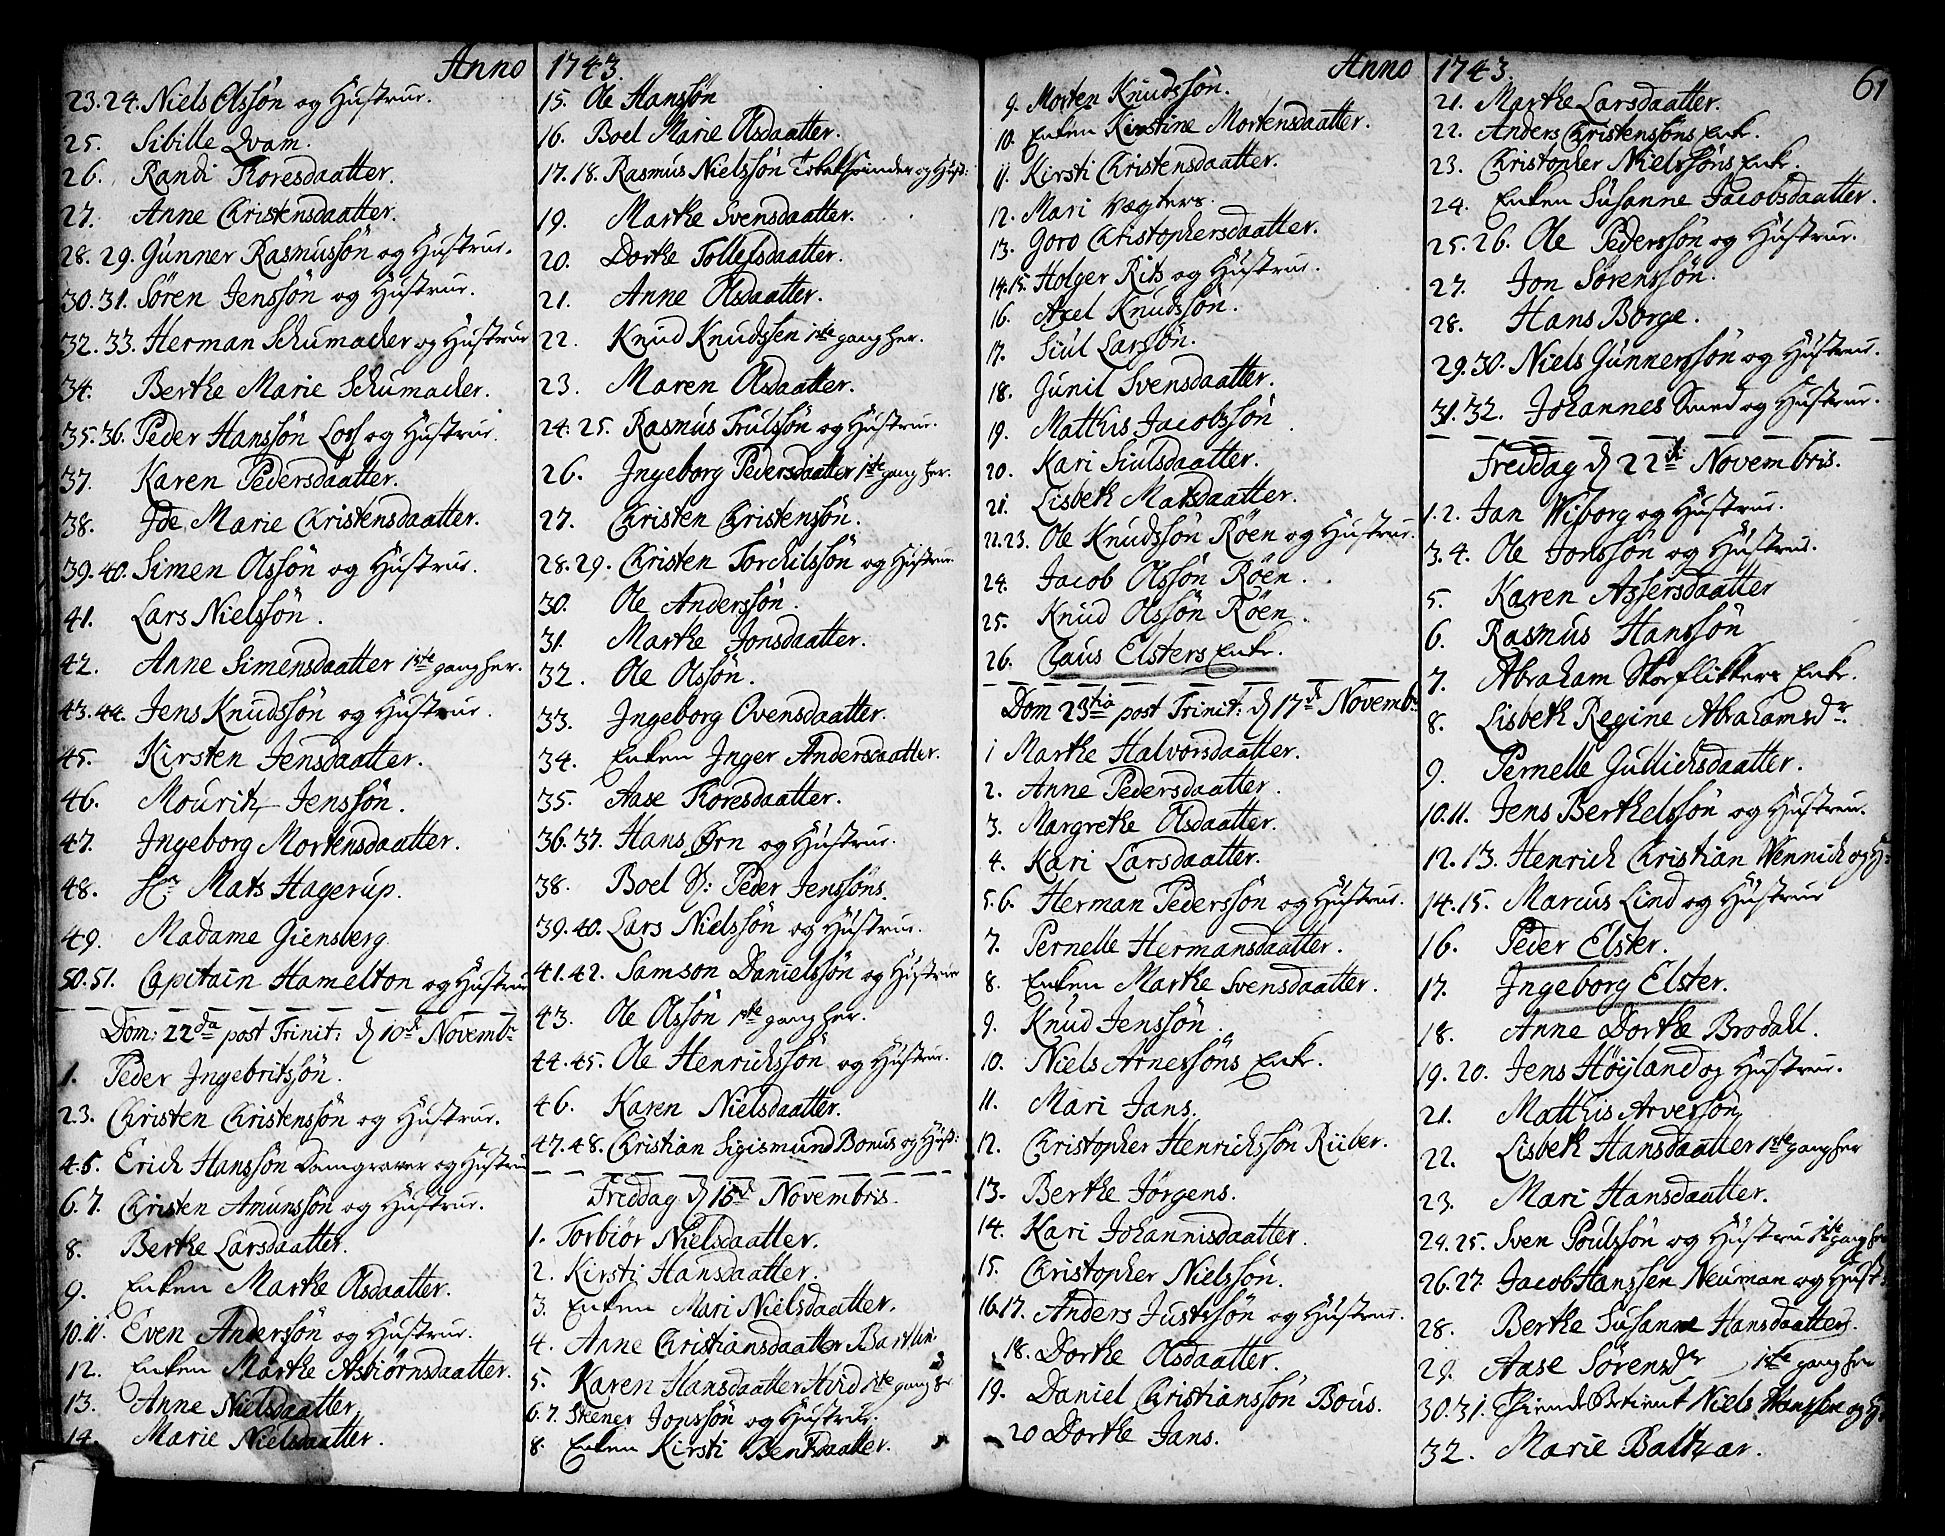 Anno 1743.
23. 24. Niels Olssön og Hustrue.
25. Sibille Qvam.
26. Randi Toresdaatter.
27. Anne Christensdaatter.
28. 29. Gunner Rasmussön og Hustrue.
30. 31. Sören Jenssön og Hustrue.
32. 33. Herman Schumacher og Hustrue
34. Berthe Marie Schumacher.
35. 36. Peder Hanssön Loss og Hustrue.
37. Karen Pedersdaatter.
38. Ide Marie Christensdaatter.
39. 40. Simen Olssön og Hustrue.
41. Lars Nielssön.
42. Anne Simensdaatter 1ste gang her.
43. 44. Jens Knudssön og Hustrue.
45. Kirsten Jensdaatter.
46. Mouritz Jenssön.
47. Ingeborg Mortensdaatter.
48. Hr Mats Hagerup.
49. Madame Giensberg.
50. 51. Capitain Hamelton og Hustrue
Dom: 22da post Trinit: d 10de Novemb:
1. Peder Ingebritssön.
2 3. Christen Christenssön og Hustrue.
4 5. Erich Hanssön Damgraver og Hustrue
6. 7. Christen Amunssön og Hustrue.
8. Berthe Larsdaatter.
9. Enken Marthe Olsdaatter.
10. 11. Even Anderssön og Hustrue.
12. Enken Marthe Asbiörnsdaatter.
13. Anne Nielsdaatter
14. Marie Nielsdaatter.
15. Ole Hanssön
16. Boel Marie Olsdaatter.
17. 18. Rasmus Nielssön Tobakspinder og Hust:
19. Marthe Svensdaatter.
20. Dorthe Tollefsdaatter.
21. Anne Olsdaatter.
22. Knud Knudssen 1ste gang her.
23. Maren Olsdaatter.
24. 25. Rasmus Trulssön og Hustrue.
26. Ingeborg Pedersdaatter 1ste gang her.
27. Christen Christensön.
28. 29. Christen Torchilssön og Hustrue.
30. Ole Anderssön.
31. Marthe Jonsdaatter.
32. Ole Olssön.
33. Ingeborg Ovensdaatter.
34. Enken Inger Andersdaatter.
35. Aase Toresdaatter.
36. 37. Hans Örn og Hustrue.
38. Boel S: Peder Jenssöns.
39. 40. Lars Nielssön og Hustrue.
41. 42. Samson Danielssön og Hustrue
43. Ole Olssön 1ste gang her.
44. 45. Ole Henrichssön og Hustrue.
46. Karen Nielsdaatter.
47. 48. Christian Sigismund Bonus og Hust:
Freddag d 15de Novembris.
1. Torbiör Nielsdaatter.
2. Kirsti Hansdaatter.
3. Enken Mari Nielsdaatter.
4. Anne Christiansdaatter Bartlin.
5. Karen Hansdaatter Hvid 1ste gang her
6. 7. Stener Jonssön og Hustrue.
8. Enken Kirsti Bentsdaatter.
Anno 1743. 61
9. Morten Knudssön.
10. Enken Kirstine Mortensdaatter.
11. Kirsti Christensdaatter.
12. Mari Vægters.
13. Goro Christophersdaatter.
14. 15. Holger Rits og Hustrue.
16. Axel Knudssön.
17. Siul Larssön.
18. Gunil Svensdaatter.
19. Matthis Jacobssön
20. Kari Siulsdaatter.
21. Lisbeth Matsdaatter.
22. 23. Ole Knudssön Röen og Hustrue.
24. Jacob Olssön Röen.
25. Knud Olssön Röen.
26. Claus Elsters Enke.
Dom 23tia post Trinit: d 17de Novemb:
1 Marthe Halvorsdaatter.
2. Anne Pedersdaatter.
3. Margrethe Olsdaatter.
4. Kari Larsdaatter.
5. 6. Herman Pederssön og Hustrue.
7. Pernelle Hermansdaatter.
8. Enken Marthe Svensdaatter.
9. Knud Jenssön.
10. Niels Arnessöns Enke.
11. Mari Jans.
12. Christopher Henrichssön Riiber.
13. Berthe Jörgens.
14. Kari Johannisdaatter.
15. Christopher Nielssön.
16. 17. Anders Justssön og Hustrue.
18. Dorthe Olsdaatter.
19. Daniel Christianssön Bous.
20 Dorthe Jans.
21. Marthe Larsdaatter.
22. Anders Christenssöns Enke.
23. Christopher Nielssöns Enke.
24. Enken Susanne Jacobsdaatter.
25. 26. Ole Pederssön og Hustrue.
27. Jon Sörenssön.
28. Hans Borge.
29. 30. Niels Gunnerssön og Hustrue.
31. 32. Johannes Smed og Hustrue.
Freddag d 22de Novembris.
1. 2. Jan Wiborg og Hustrue.
3. 4. Ole Jonssön og Hustrue.
5. Karen Assersdaatter
6. Rasmus Hanssön
7. Abraham Skorflikkers Enke.
8. Lisbeth Regine Abrahamsdr
9. Pernelle Gullichsdaatter.
10. 11. Jens Berthelssön og Hustrue.
12. 13. Henrich Christian Wennich og H:
14. 15. Marcus Lind og Hustrue
16. Peder Elster.
17. Ingeborg Elster.
18. Anne Dorthe Brodahl.
19. 20. Jens Höyland og Hustrue.
21. Matthis Arverson
22. Lisbeth Hansdaatter 1ste gang her
23. Mari Hansdaatter.
24. 25. Sven Poulssön og Hustru 1ste gang her
26. 27. Jacob Hanssen Neuman og Hust:
28. Berthe Susanne Hansdaatter.
29. Aase Sörensdr 1ste gang her
30. 31. Niels Hanssen og H:
32. Marie Baltzar.